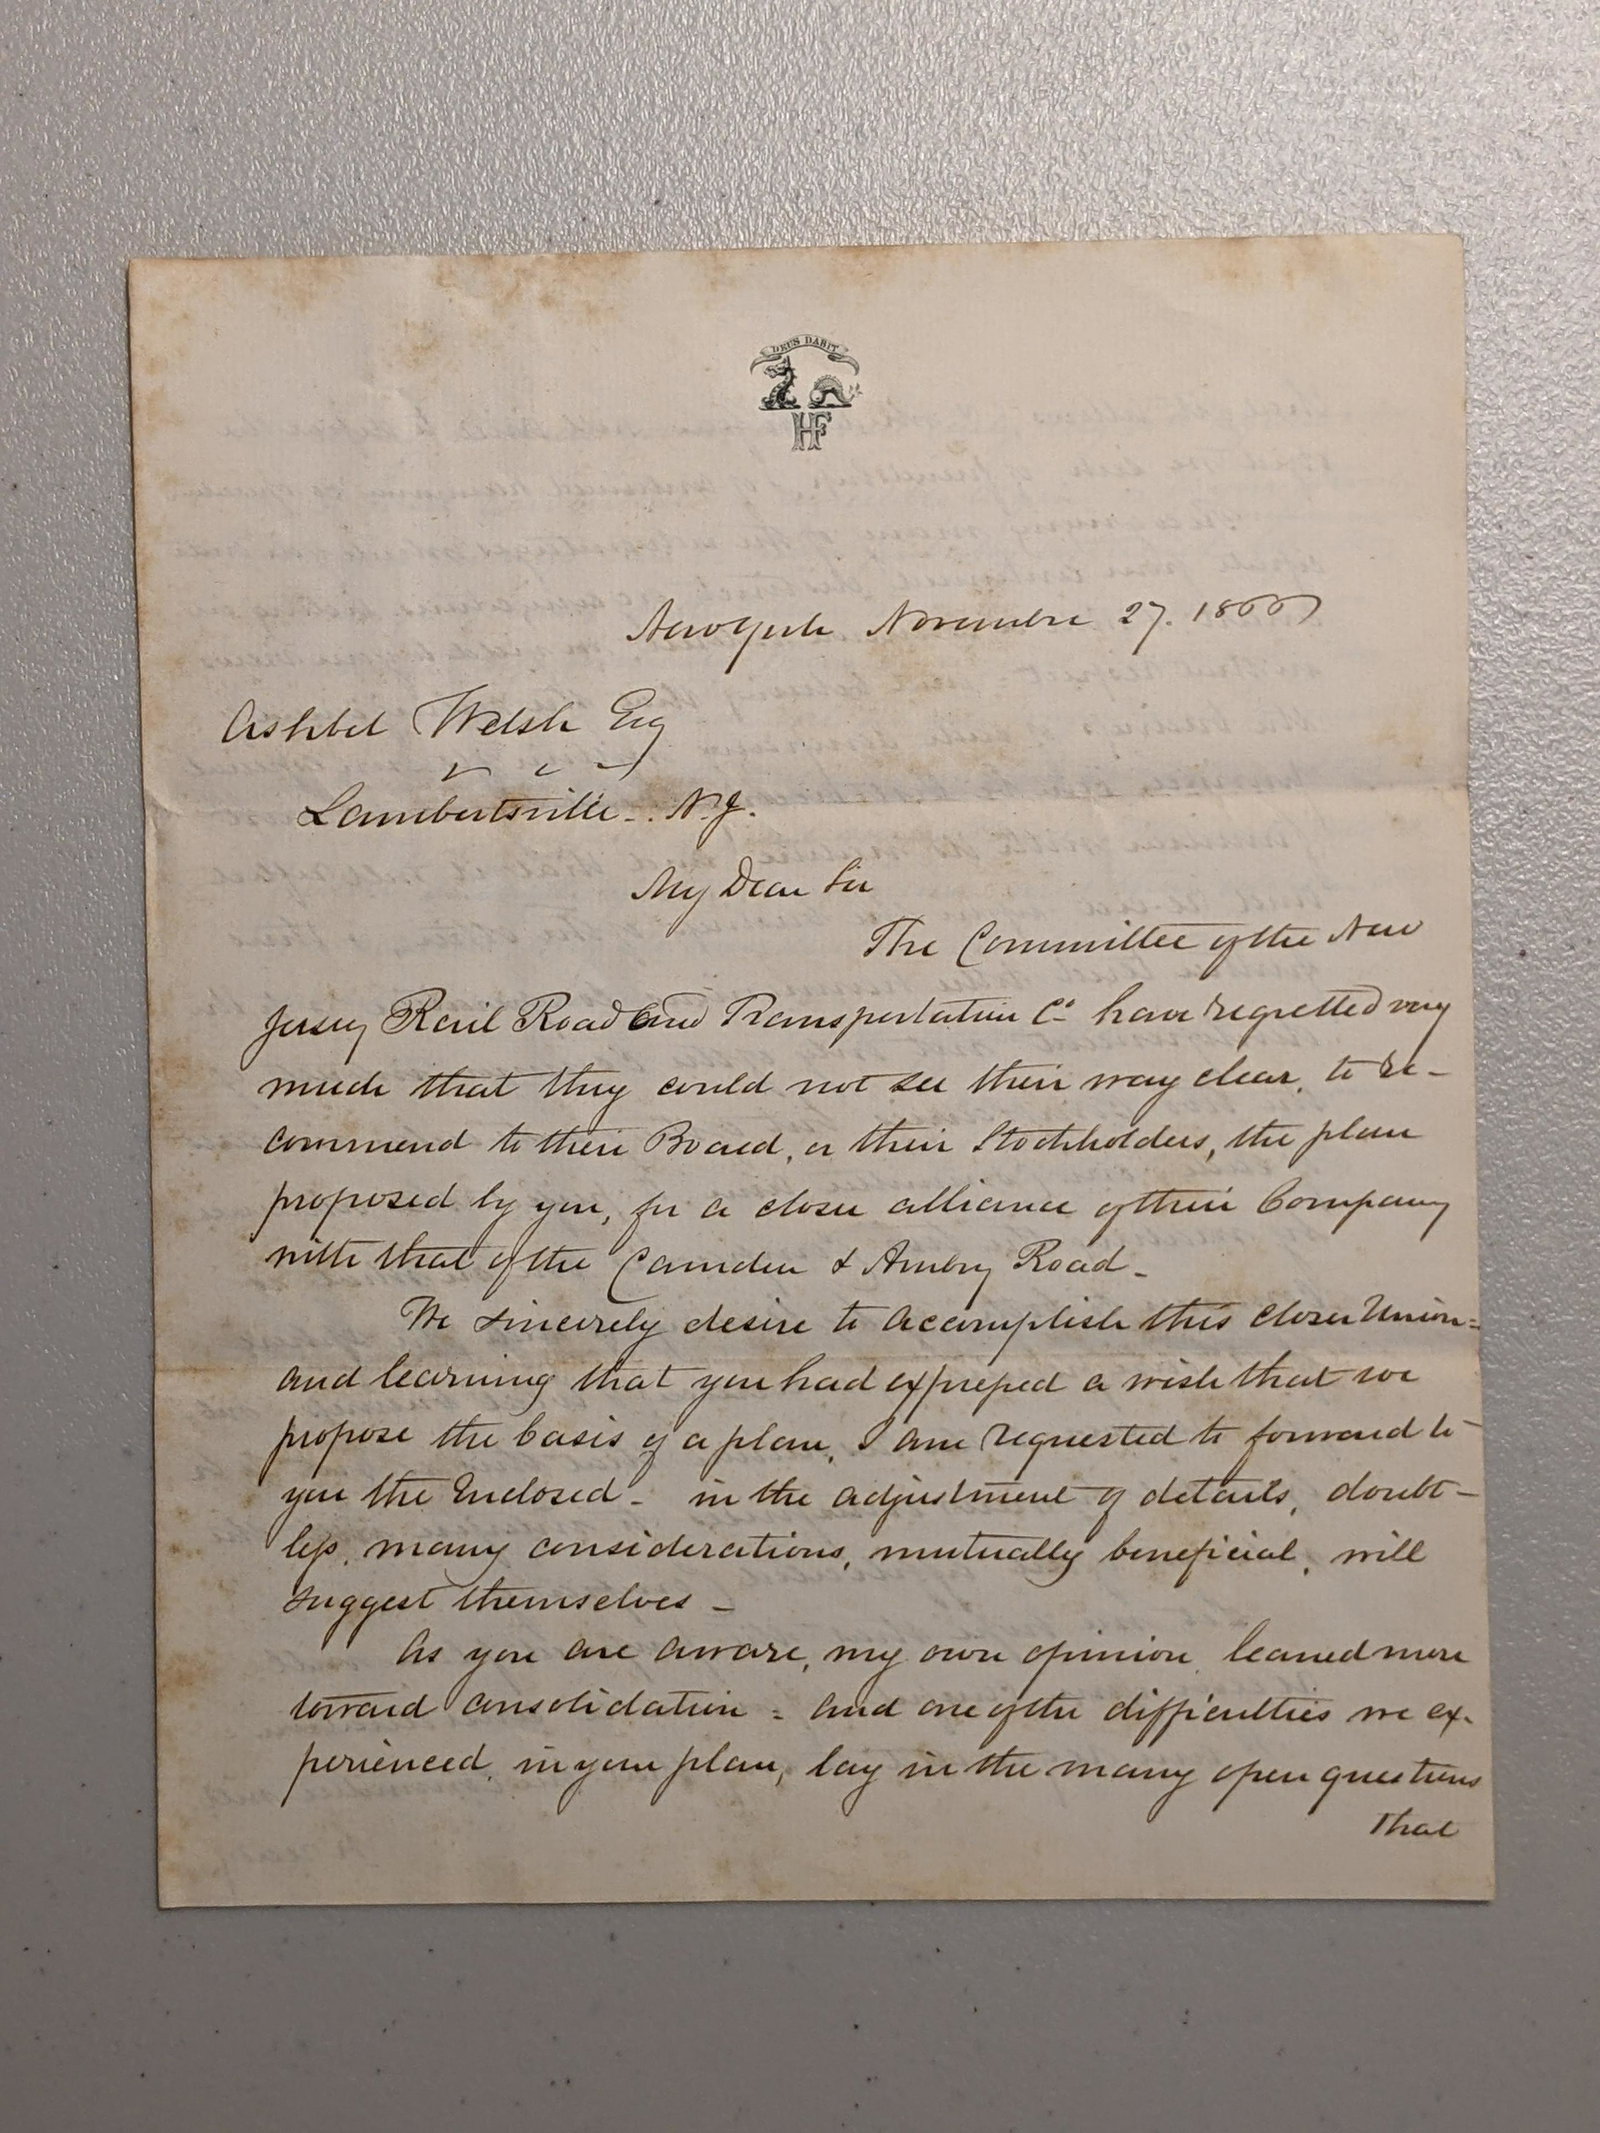 DEUS DABIT
HF
New York November 27. 1866
Ashbel Welsh Esq
Lambertsville. N.J.
My Dear Sir
The Committee of the New
Jersey Rail Road and Transportation Co have regretted very
much that they could not see their way clear, to re-
commend to their Board, or their Stockholders, the plan
proposed by you, for a closer alliance of their Company
with that of the Camden & Amboy Road_
We sincerely desire to accomplish this closer Union=
and learning that you had expressed a wish that we
propose the basis of a plan, I am requested to forward to
you the Enclosed_ in the adjustment of details, doubt-
less, many considerations, mutually beneficial, will
suggest themselves_
As you are aware, my own opinion leaned more
toward consolidation = and one of the difficulties we ex-
perienced, in your plan, lay in the many open questions
That